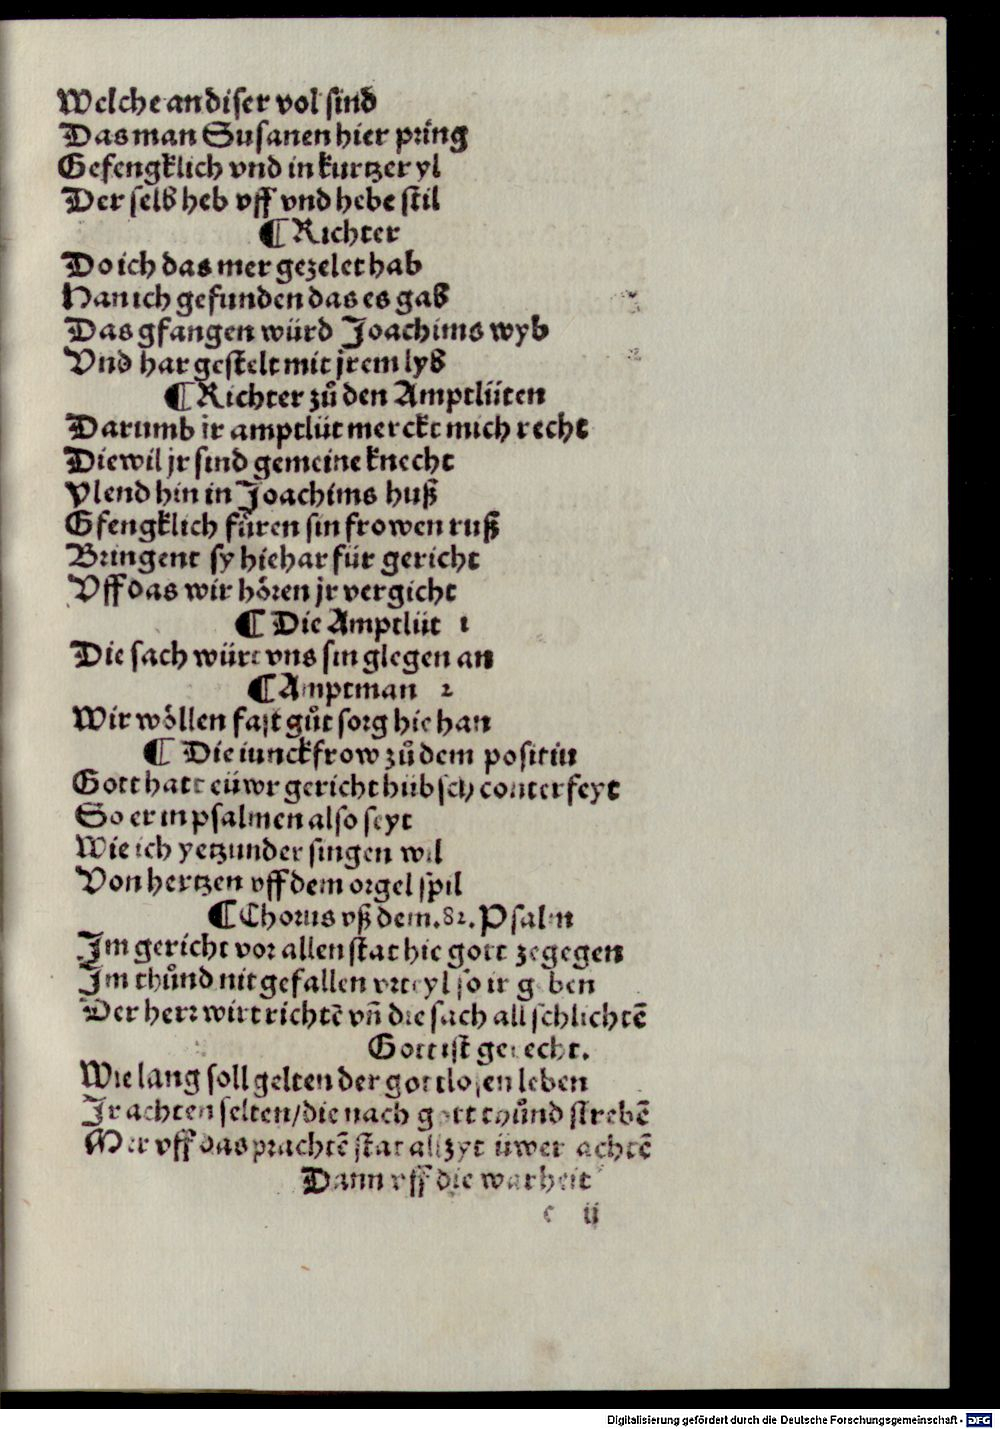 Welche an diser vol sind
Das man Susanen hier pring
Gefengklich vnd in kurtzer yl
Der selb heb vff vnd hebe stil
¶ Richter
Do ich das mer gezelet hab
Han ich gefunden das es gab
Das gfangen würd Joachims wyb
Vnd har gestelt mit jrem lyb
¶ Richter zů den Amptlüten
Darumb ir amptlüt merckt mich recht
Diewil jr sind gemeine knecht
Ylend hin in Joachims huß
Gfengklich füren sin frowen ruß
Bringent sy hiehar für gericht
Vff das wir hören jr vergicht
¶ Die Amptlüt 1
Die sach würt vns sin glegen an
¶ Amptman 2
Wir wöllen fast gůt sorg hie han
¶ Die iunckfrow zů dem positiu
Gott hatt eüwr gericht hübsch conterfeyt
So er in psalmen also seyt
Wie ich yetzunder singen wil
Von hertzen vff dem orgel spil
¶ Chorus vß dem .82. Psalm
Im gericht vor allen stat hie gott zegegen
Im thůnd nit gefallen vrteyl so ir geben
Der herr wirt richtē vn̄ die sach all schlichtē
Gott ist gerecht.
Wie lang soll gelten der gottlosen leben
Ir achten selten/die nach gott thůnd strebē
Mer vff das prachtē stat allzyt üwer achtē
Dann vff die warheit
c ij
Digitalisierung gefördert durch die Deutsche Forschungsgemeinschaft - DFG